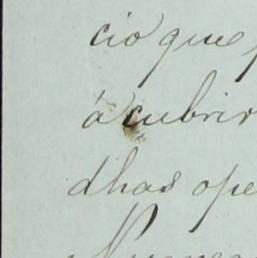 cio que
á cubrir
dhas ope